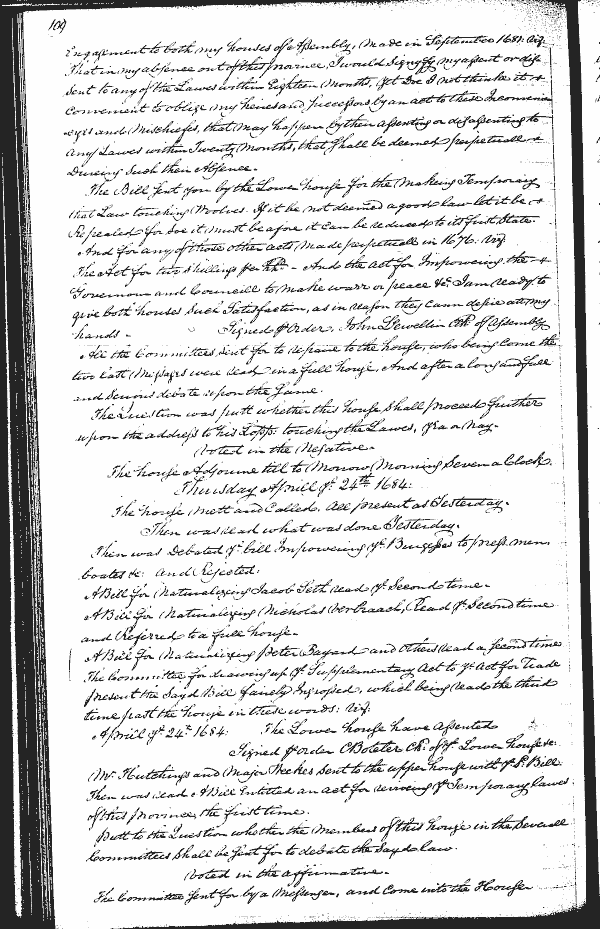 109
Engagement to both my houses of Assembly, Made in September 1681. Viz.
That in my absence out of this province, I would Signify my assent or diss
sent to any of the Lawes within Eighteen Months, yet Doe I not thinke it
Convenient to oblige my heires and successors by an act to these Inconveni
encyes and Mischiefes, that may happen by their assenting or disassenting to
any Lawes within Twenty Months, that shall be deemed perpetuall
Dureing Such their Absence.
The Bill Sent you by the Lower house for the Making Temporary
that Law touching Wolves. If it be not deemed a good law let it be
Repealed for Soe it must be afore it can be reduced to its first State.
And for any of those other acts made perpetuall in 1676. Viz.
The Act for two shillings And the act for Impowering the
Governour and Councill to Make warr or peace &c. I am ready to
give both houses Such Satisfaction, as in reason they cann desire att my
hands. Signed Order. John Llewellin Clk of Assembly
All the Committees sent for to repaire to the house, who being Come the
two Last Messages were read in a full house, And after a long and full
and Serious debate upon the Same.
The Question was putt whether this house shall proceed further
upon the address to his Lopp. touching the Lawes, Yea or Nay.
Voted in the Negative.
The house Adjourne till to Morrow Morning Seven a Clock.
Thursday Aprill ye 24th 1684.
The house Mett and Called. All present as Yesterday.
Then was read what was done Yesterday.
Then was Debated ye bill Impowering ye Burgesses to press men
boates &c. And Rejected.
A Bill for Naturalizing Jacob Seth read ye Second time.
A Bill for Naturalizing Nicholas Verbraack, Read ye Second time
and Referred to a full house.
A Bill for Naturalizing Peter Bayard and Others read a Second time
The Committee for drawing up ye Supplementary Act to ye Act for Trade
present the Sayd Bill fairely Ingrossed, which being read the third
time past the house in these words: Viz.
Aprill ye 24th 1684. The Lower house have Assented
Signed order C Boteler Clk of ye Lower house &c.
Mr. Hutchings and Major Weekes Sent to the upper house with ye Sd Bill
Then was read A Bill Entitled an act for reviveing ye Temporary lawes
of this Province the first time.
Putt to the Question whether the Members of this house in the Severall
Committees Shall be Sent for to debate the Sayd law.
Voted in the affirmative.
The Committee Sent for by a Messenger, and Come into the House